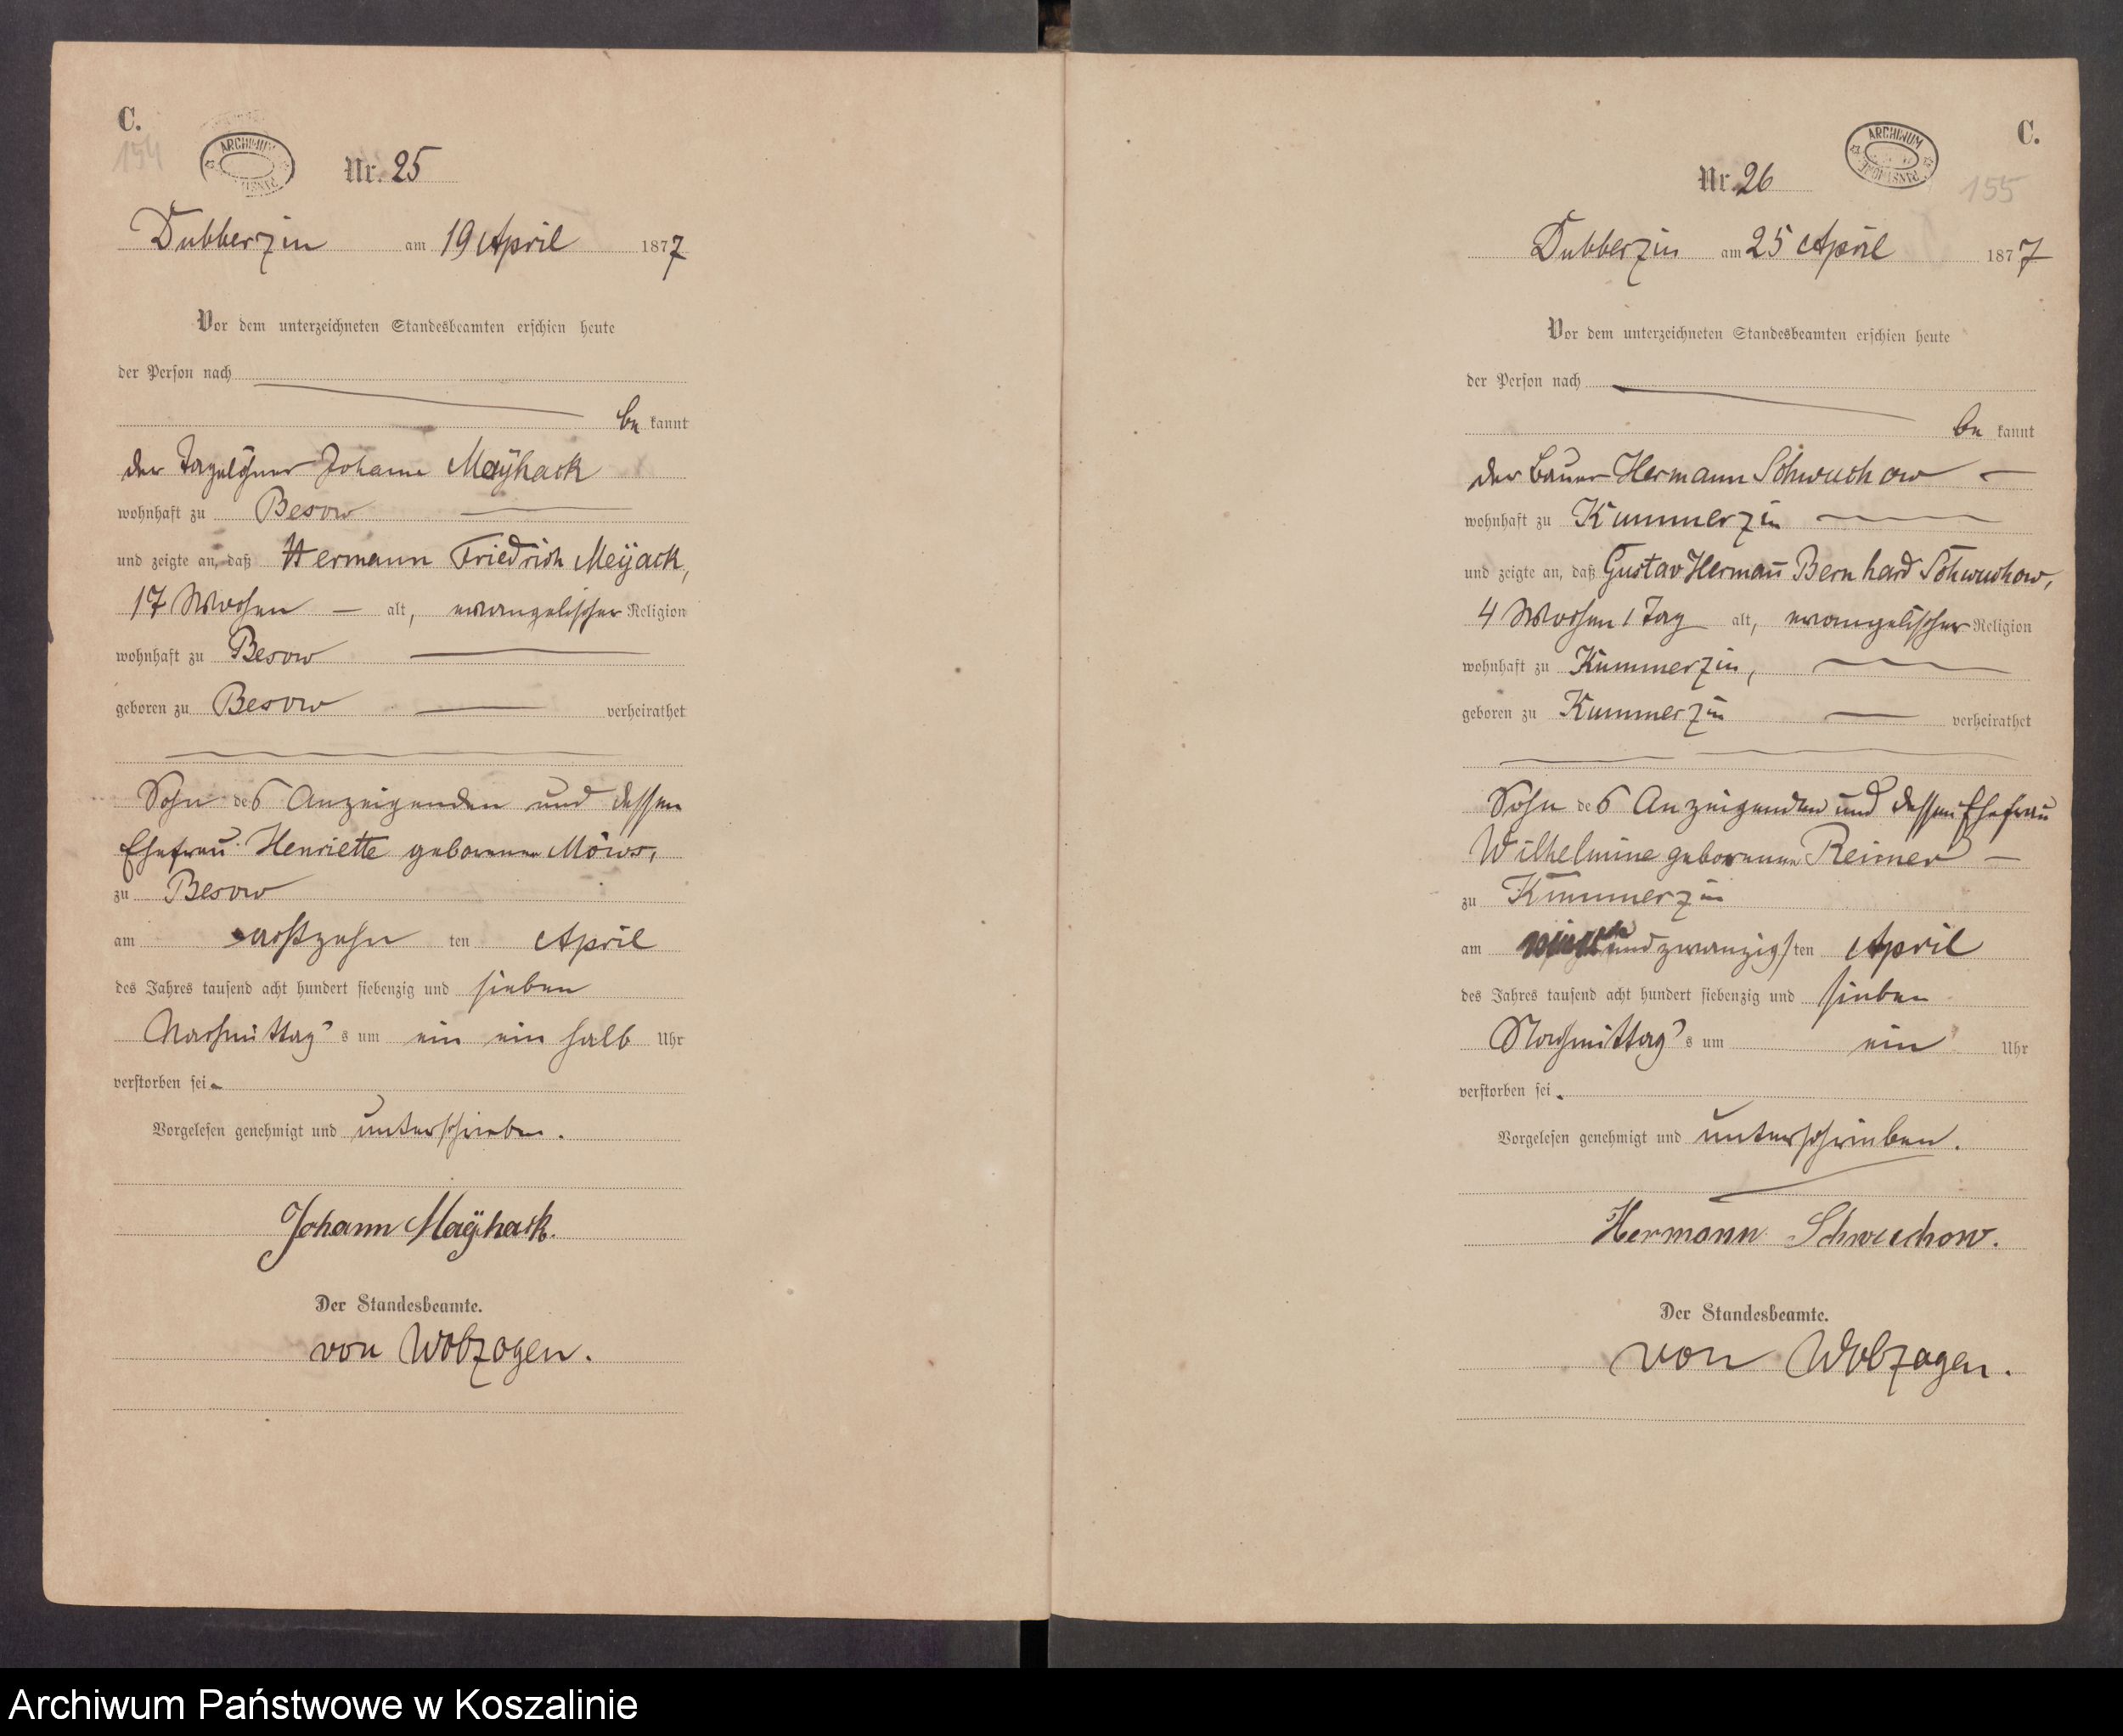 C.
154
ARCHIWUM
Nr. 25
Dubberzin am 19 April 1877
Vor dem unterzeichneten Standesbeamten erschien heute
der Person nach
be kannt
der Tagelöhner Johann Maÿhack
wohnhaft zu Besow
und zeigte an, daß Hermann Friedrich Meÿack,
17 Wochen alt, evangelischer Religion
wohnhaft zu Besow
geboren zu Besow verheirathet
Sohn des Anzeigenden und dessen
Ehefrau Henriette geborenen Möws,
zu Besow
am achtzehn ten April
des Jahres tausend acht hundert siebenzig und sieben
Nachmittag s um ein ein halb Uhr
verstorben sei.
Vorgelesen genehmigt und unterschrieben.
Johann Maÿhack.
Der Standesbeamte.
von Wolzogen.
C.
ARCHIWUM
155
Nr. 26
Dubberzin am 25 April 1877
Vor dem unterzeichneten Standesbeamten erschien heute
der Person nach
be kannt
der Bauer Hermann Schwuchow
wohnhaft zu Kummerzin
und zeigte an, daß Gustav Hermann Bernhard Schwuchow,
4 Wochen 1 Tag alt, evangelischer Religion
wohnhaft zu Kummerzin,
geboren zu Kummerzin verheirathet
Sohn des Anzeigenden und dessen Ehefrau
Wilhelmine geborenen Reimer
zu Kummerzin
am undzwanzigsten April
des Jahres tausend acht hundert siebenzig und sieben
Nachmittag s um ein Uhr
verstorben sei.
Vorgelesen genehmigt und unterschrieben.
Hermann Schwuchow.
Der Standesbeamte.
von Wolzogen.
Archiwum Państwowe w Koszalinie